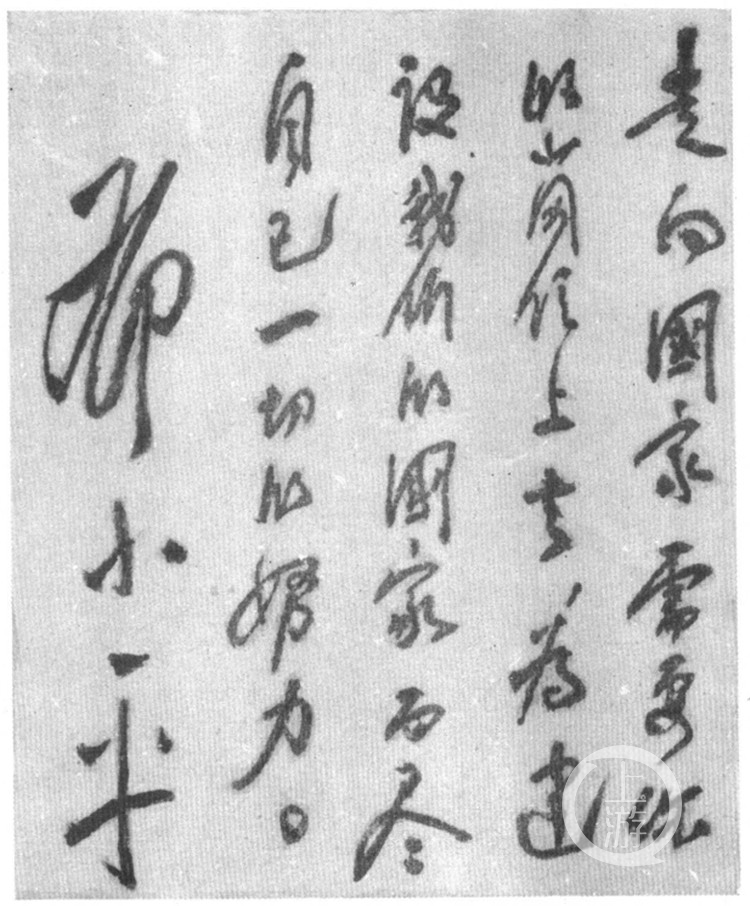 走向國家需要你
的崗位上去,為建
設我們的國家而尽
自己一切的努力。
鄧小平
上游